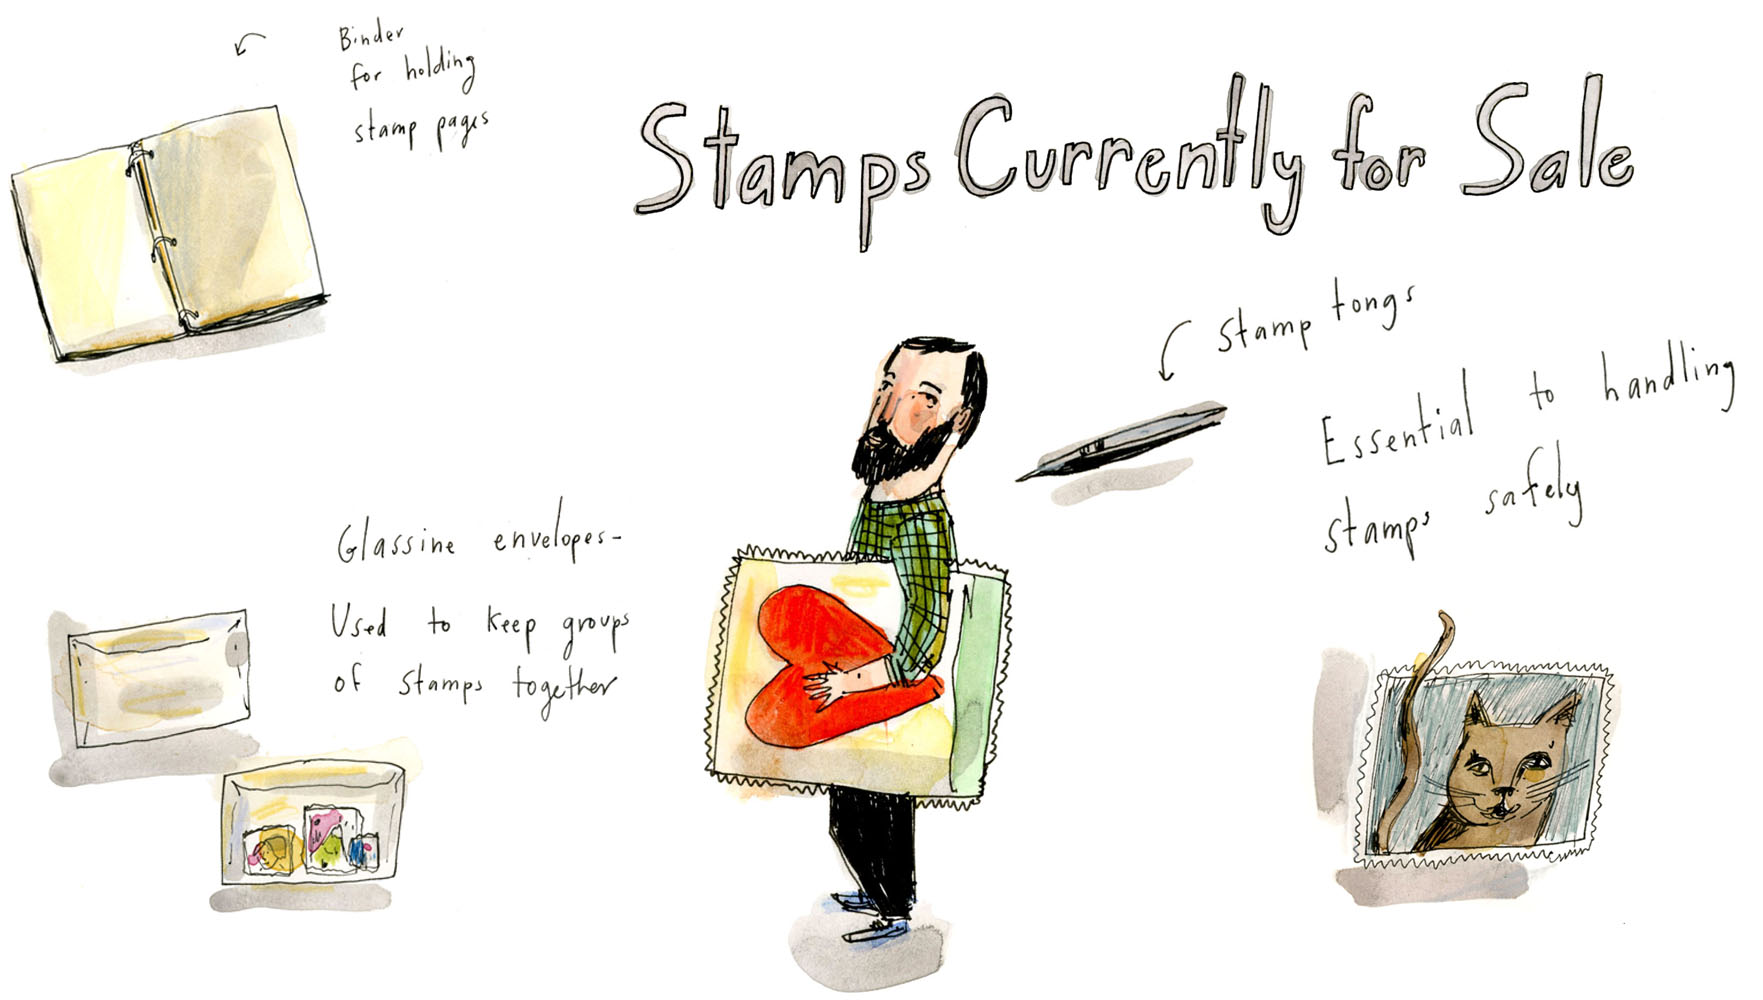 Binder
for holding
stamp pages
Stamps Currently for Sale
stamp tongs
Essential to handling
stamps safely
Glassine envelopes-
Used to keep groups
of stamps together